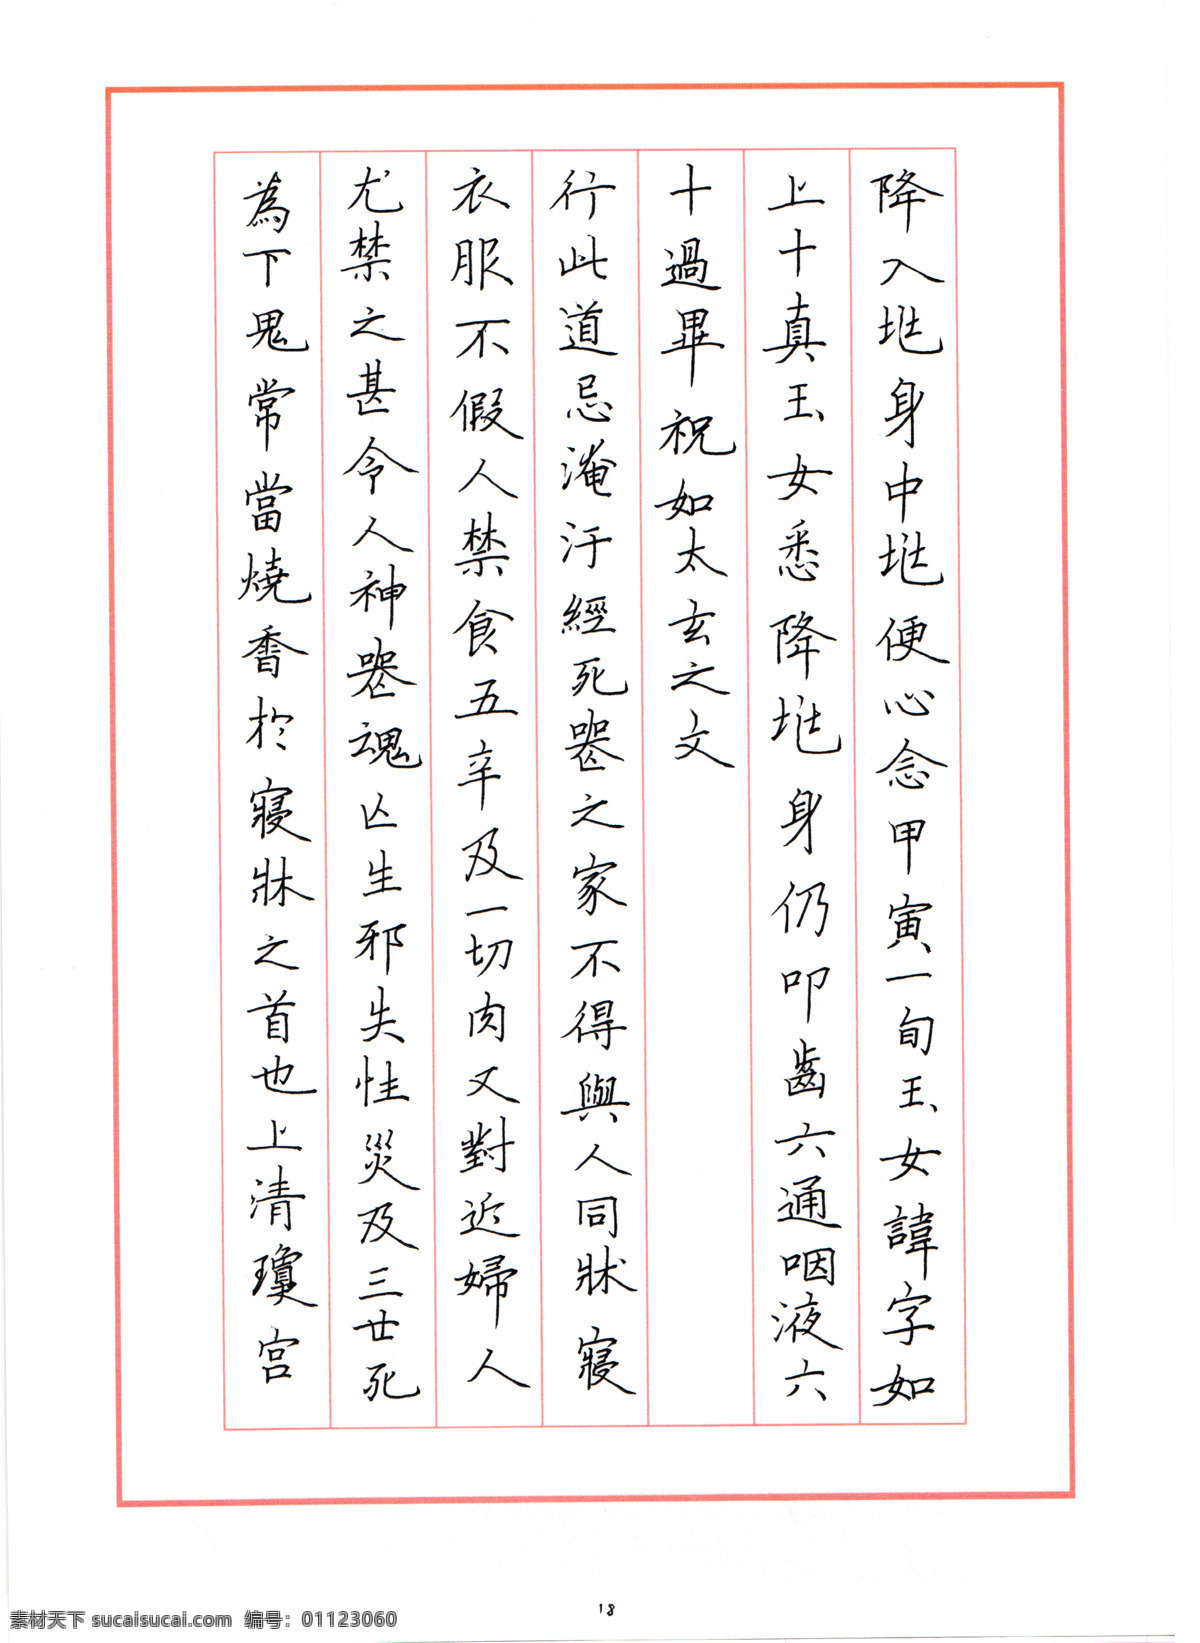 降入兆身中兆便心念甲寅一旬玉女諱字如
上十真玉女悉降兆身仍叩齒六通咽液六
十過畢祝如太玄之文
行此道忌淹汙經死喪之家不得與人同牀寢
衣服不假人禁食五辛及一切肉又對近婦人
尤禁之甚令人神喪魂亡生邪失性災及三世死
為下鬼常當燒香於寢牀之首也上清瓊宮
18
素材天下 sucaisucai.com 编号：01123060